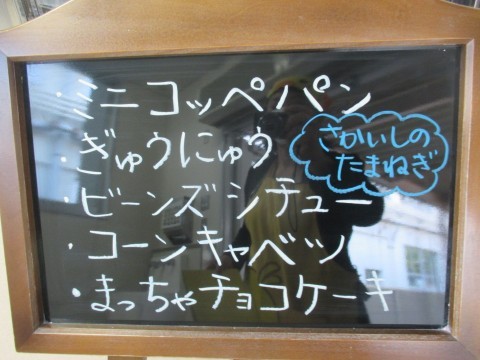 ・ミニコッペパン
・ぎゅうにゅう
・ビーンズシチュー
・コーンキャベツ
・まっちゃチョコケーキ
さかいしの
たまねぎ